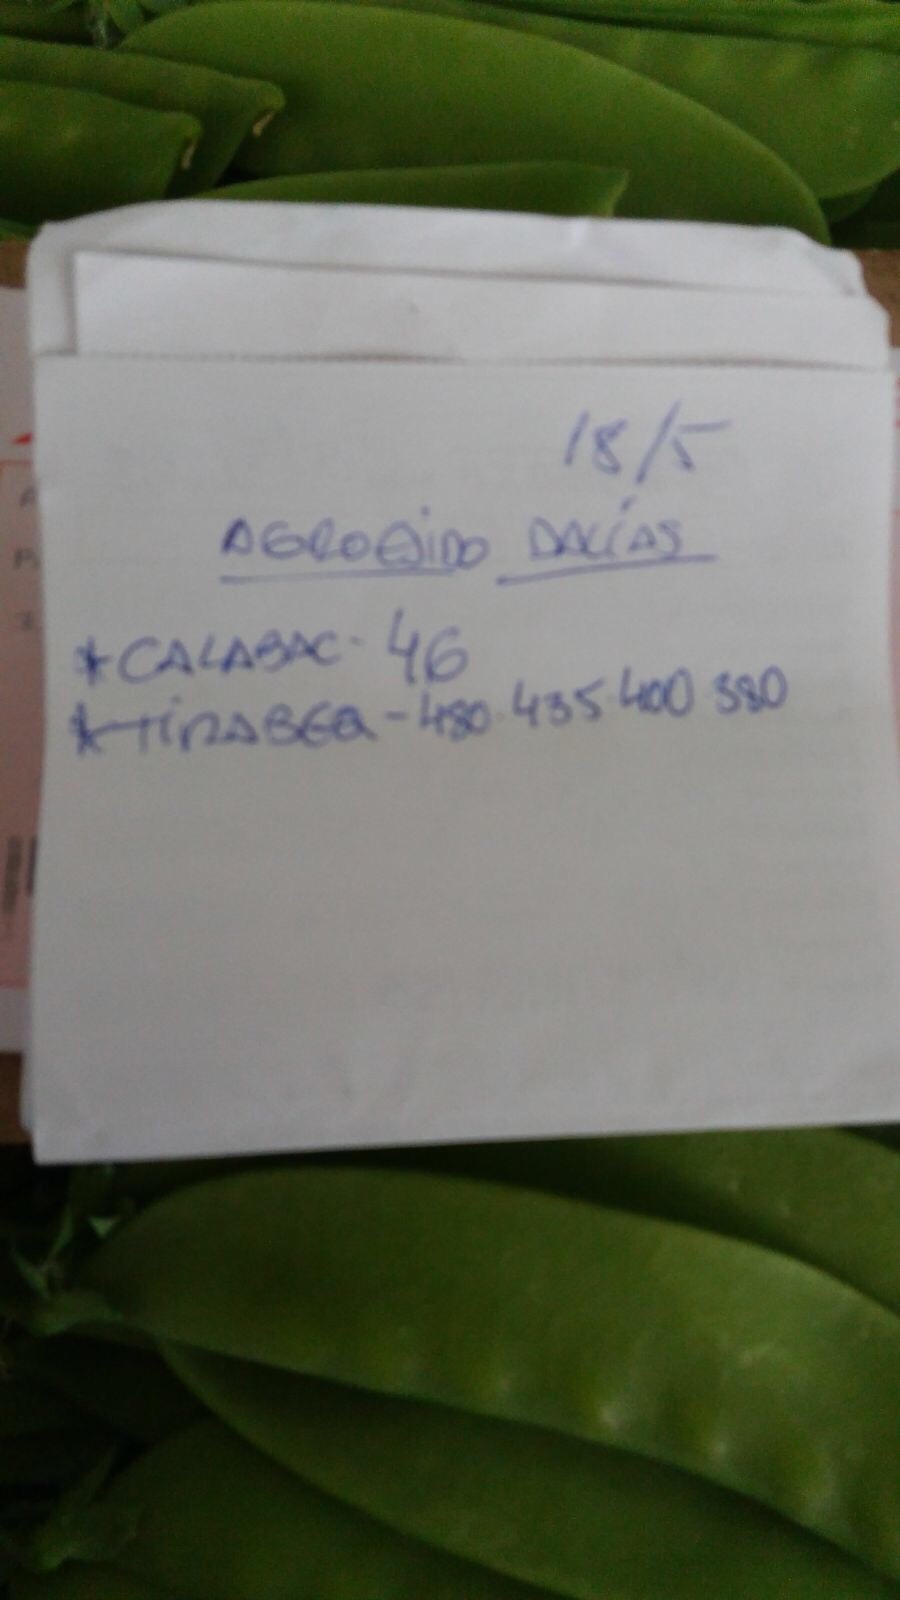 18/5
AGROEJIDO DALÍAS
*CALABAC- 46
*TIRABEQ-480.435.400.380